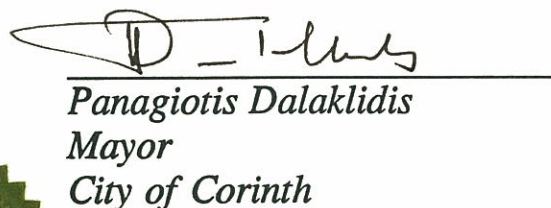 Panagiotis Dalaklidis
Mayor
City of Corinth